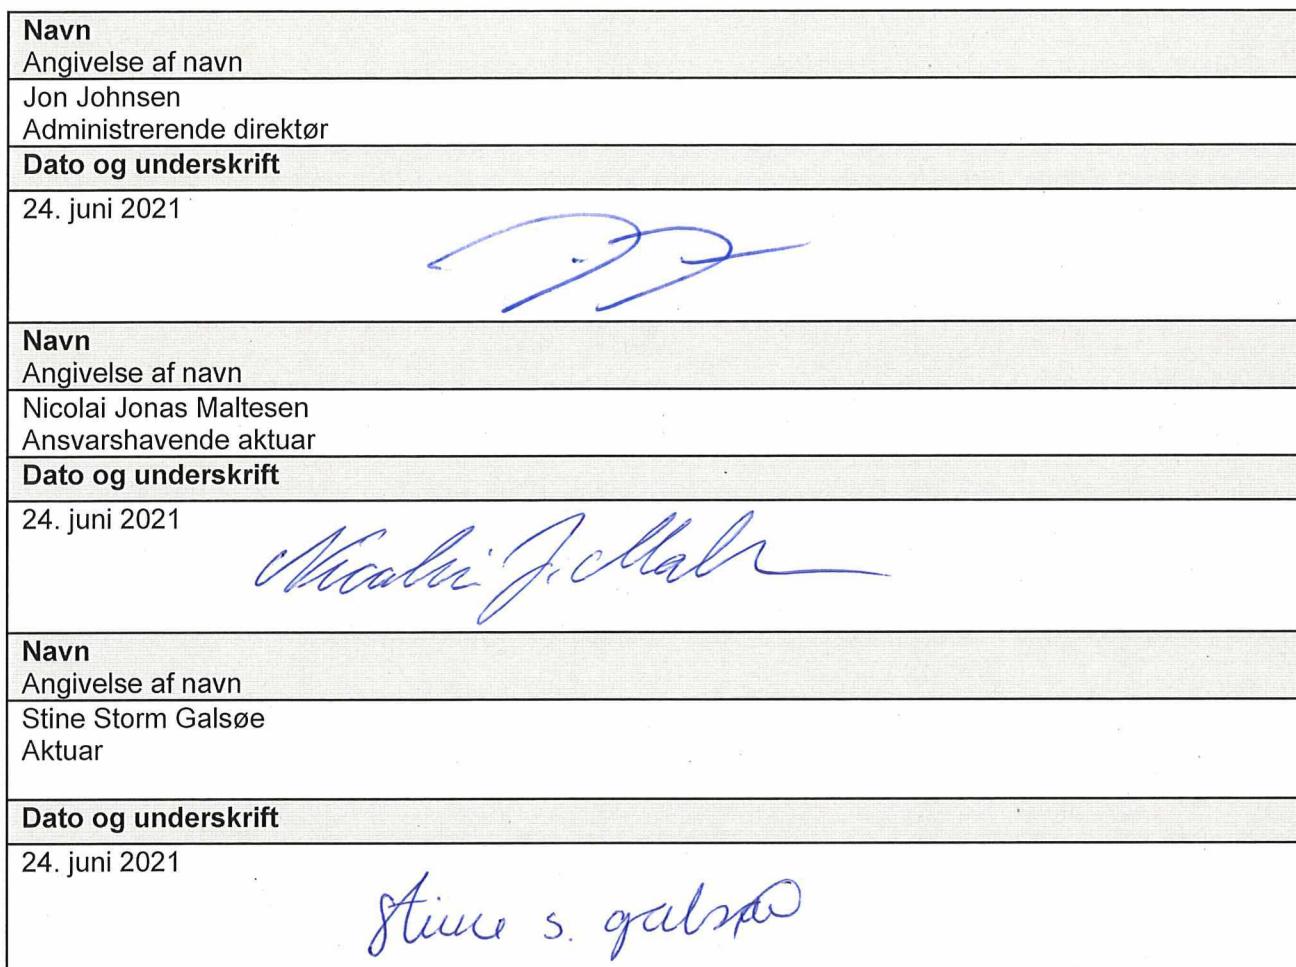 Navn
Angivelse af navn
Jon Johnsen
Administrerende direktør
Dato og underskrift
24. juni 2021
Navn
Angivelse af navn
Nicolai Jonas Maltesen
Ansvarshavende aktuar
Dato og underskrift
24. juni 2021
Nicolai J. Mal
Navn
Angivelse af navn
Stine Storm Galsøe
Aktuar
Dato og underskrift
24. juni 2021
Stine s. galsøe